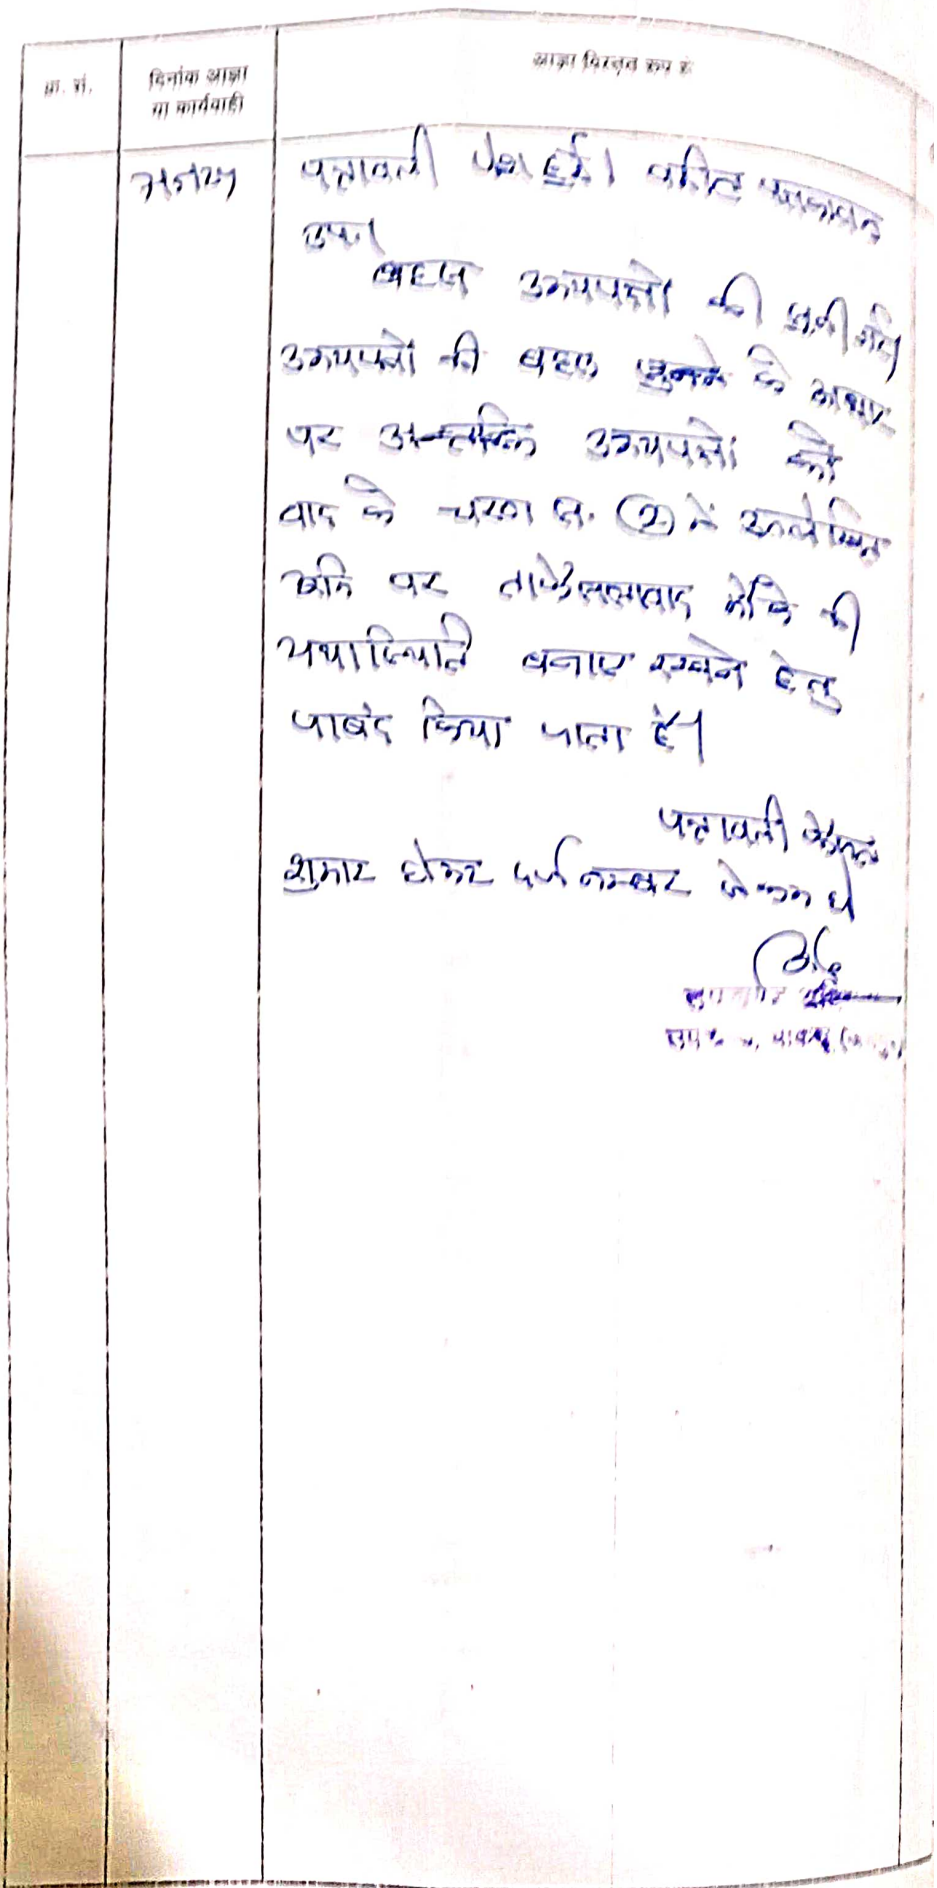 क्र. सं.
दिनांक आज्ञा
या कार्यवाही
आज्ञा विस्तृत रूप से
पत्रावली पेश हुई। वकील पक्षकारान
उप।
बहस उभयपक्षो की सुनी गई।
उभयपक्षो की बहस सुनने के आधार
पर उभयपक्षो को
वाद के चरण सं. (2) में उल्लेखित
भूमि पर ताफैसलावाद मौके की
यथास्थिति बनाए रखने हेतु
पाबंद किया जाता है।
पत्रावली फैसल
शुमार होकर दर्ज नम्बर से कम हो